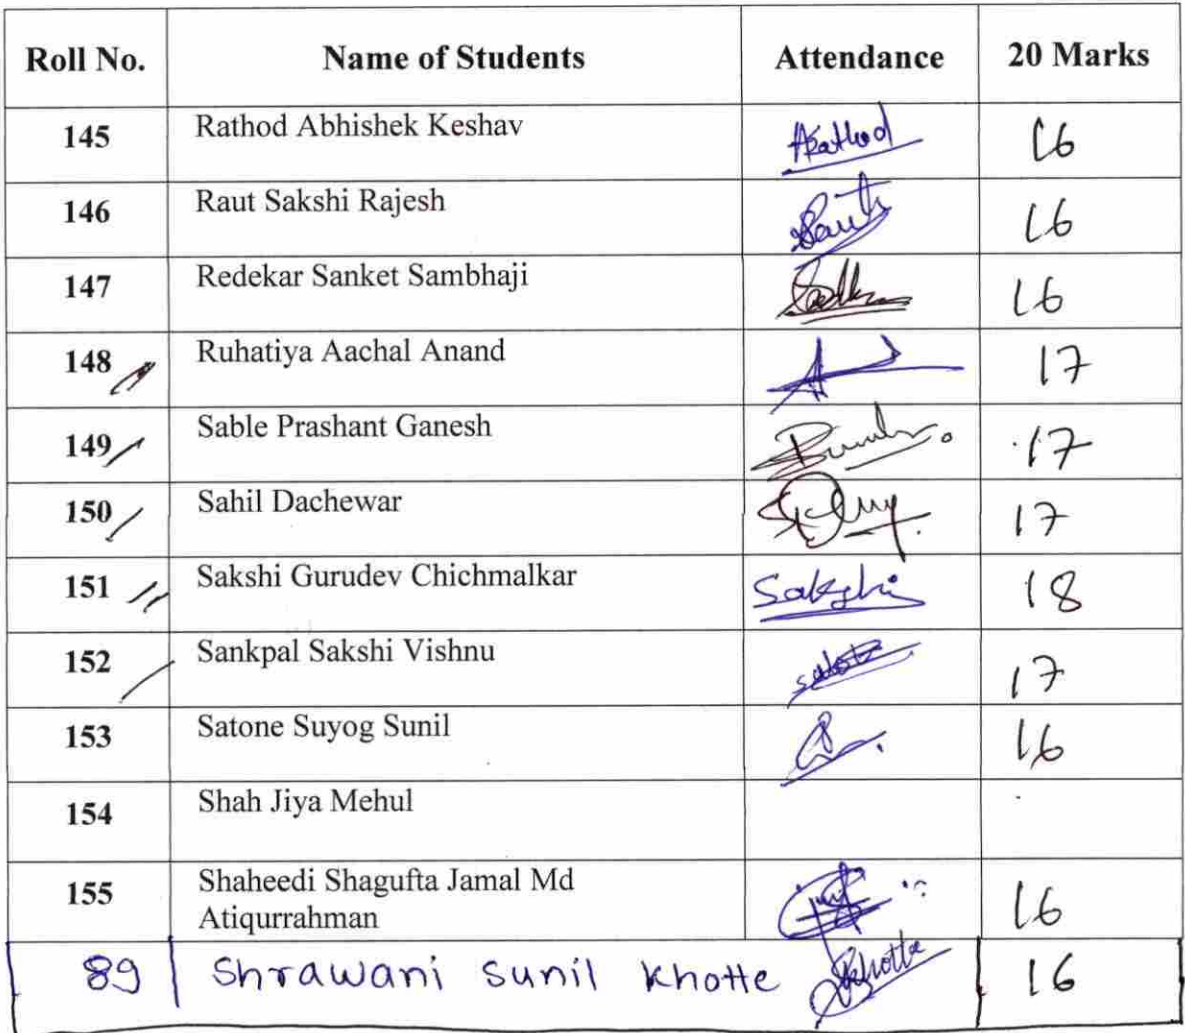 Roll No. Name of Students Attendance 20 Marks
145 Rathod Abhishek Keshav ARathod 16
146 Raut Sakshi Rajesh 16
147 Redekar Sanket Sambhaji 16
148 Ruhatiya Aachal Anand 17
149 Sable Prashant Ganesh 17
150 Sahil Dachewar 17
151 Sakshi Gurudev Chichmalkar Sakshi 18
152 Sankpal Sakshi Vishnu 17
153 Satone Suyog Sunil 16
154 Shah Jiya Mehul
155 Shaheedi Shagufta Jamal Md
Atiqurrahman 16
89 Shrawani Sunil Khotte 16